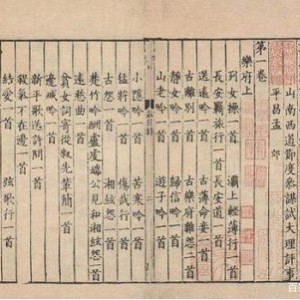 山南西道節度參謀試大理評事
平昌孟 郊
第一卷
樂府上
列女操一首 灞上輕薄行一首
長安羈旅行一首 長安道一首
送遠吟一首 古薄命妾一首
古離別一首 古樂府雜怨三首
靜女吟一首 歸信吟一首
山老吟一首 遊子吟一首
小隱吟一首 苦寒吟一首
猛將吟一首 傷哉行一首
古怨一首 湘絃怨一首
楚竹吟酬盧虔端公見和湘絃怨一首
遠愁曲一首
貧女詞寄從叔先輩簡一首
新平歌送許問一首
殺氣不在邊一首
結愛一首 弦歌行一首